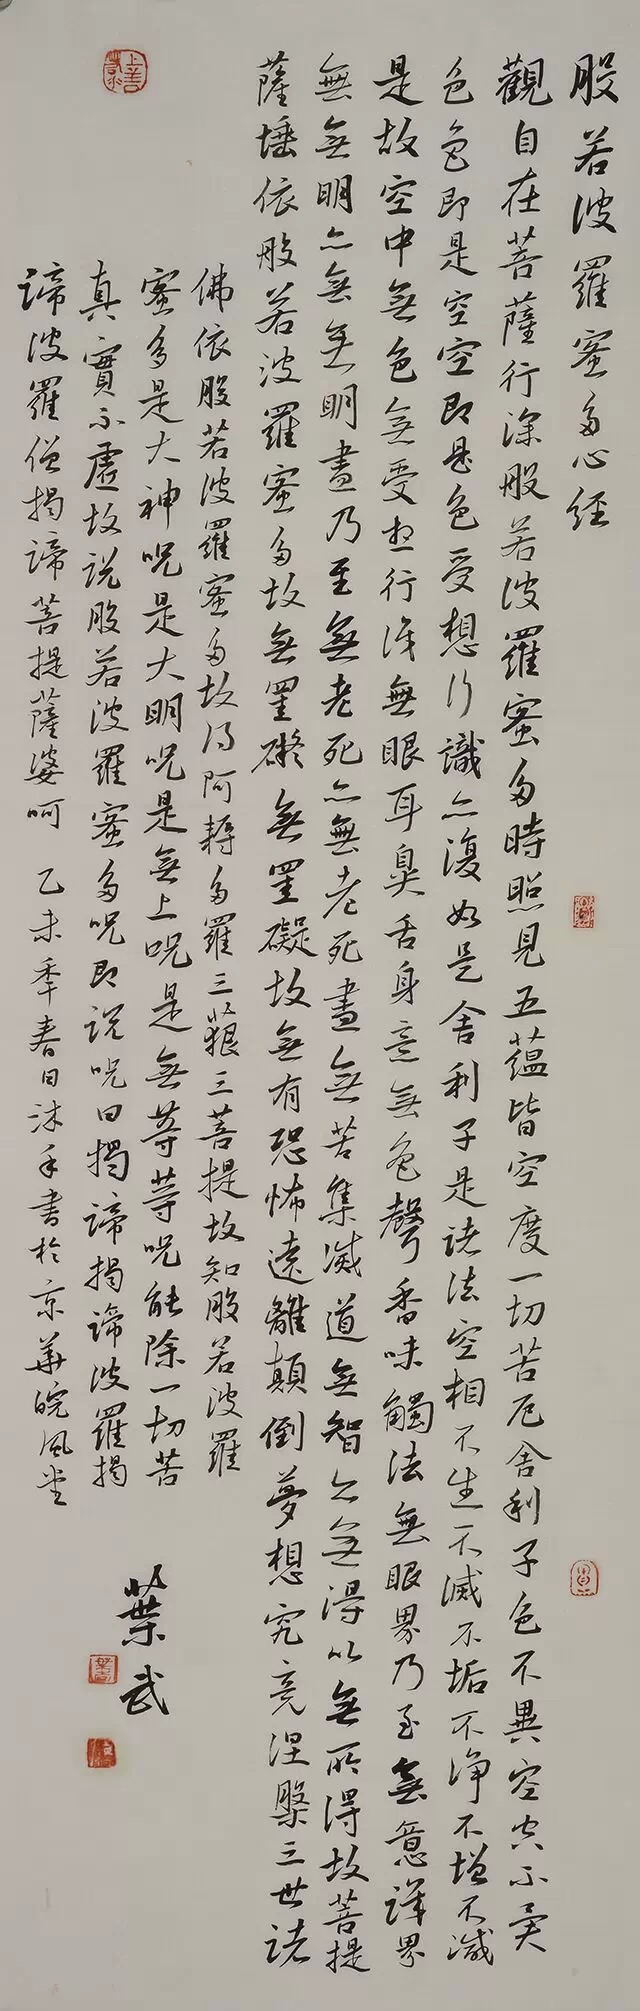 般若波羅蜜多心經
觀自在菩薩行深般若波羅蜜多時照見五蘊皆空度一切苦厄舍利子色不異空空不異
色色即是空空即是色受想行識亦復如是舍利子是諸法空相不生不滅不垢不淨不增不減
是故空中無色無受想行識無眼耳鼻舌身意無色聲香味觸法無眼界乃至無意識界
無無明亦無無明盡乃至無老死亦無老死盡無苦集滅道無智亦無得以無所得故菩提
薩埵依般若波羅蜜多故無罣礙無罣礙故無有恐怖遠離顛倒夢想究竟涅槃三世諸
佛依般若波羅蜜多故得阿耨多羅三藐三菩提故知般若波羅
蜜多是大神咒是大明咒是無上咒是無等等咒能除一切苦
真實不虛故說般若波羅蜜多咒即說咒曰揭諦揭諦波羅揭
諦波羅僧揭諦菩提薩婆呵 乙未季春日沐手書於京華皖風堂
葉武
上善